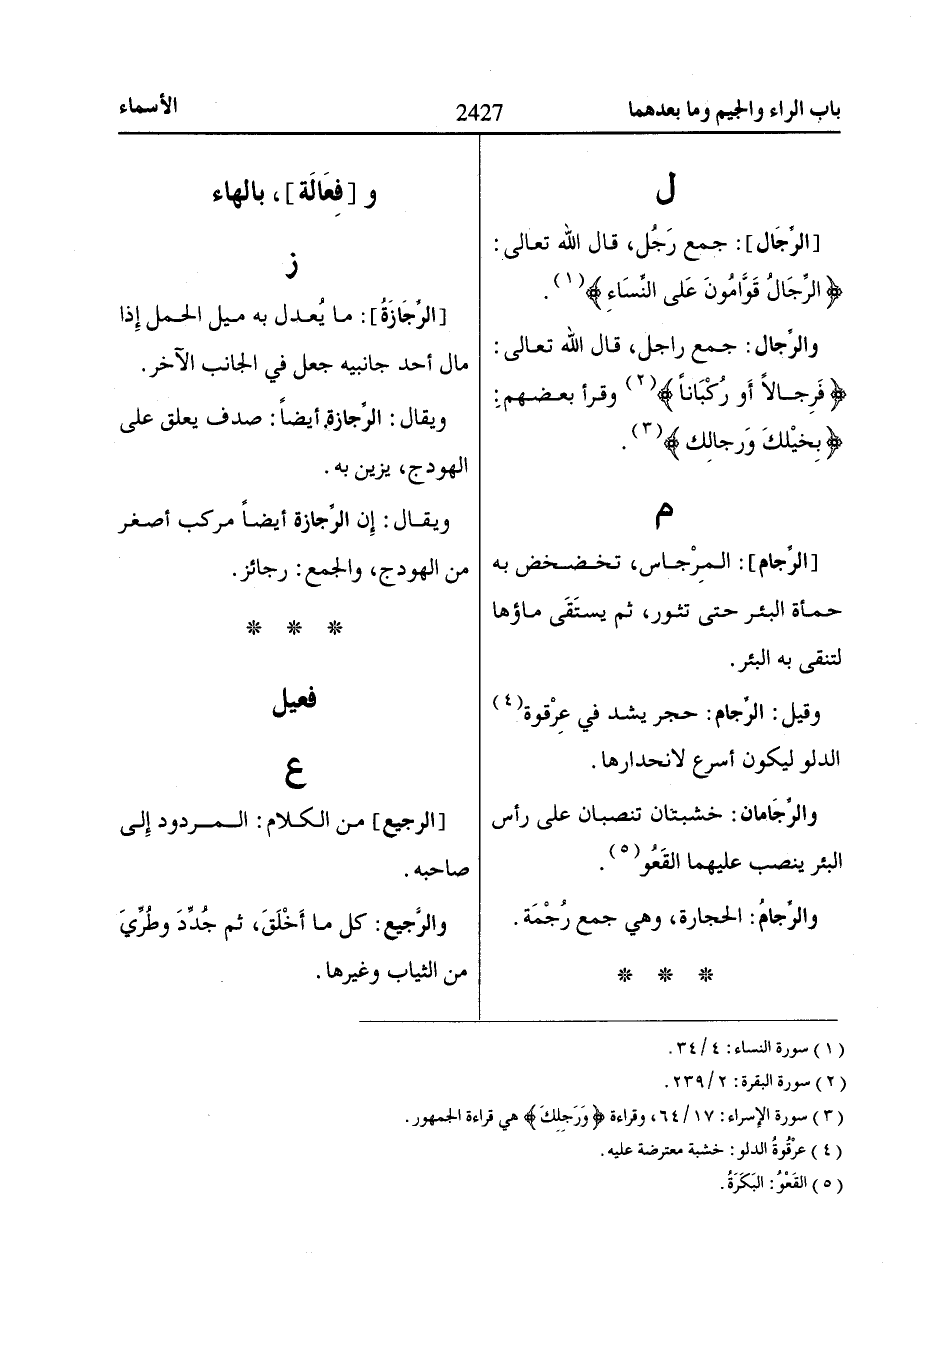 باب الراء والجيم وما بعدهما 2427 الأسماء
ل
[الرِّجَال]: جمع رَجُل، قال الله تعالى:
﴿الرِّجَالُ قَوَّامُونَ عَلى النِّسَاءِ﴾(١).
والرِّجال: جمع راجل، قال الله تعالى:
﴿فَرِجـالاً أو رُكْبَاناً﴾(٢) وقرأ بعضهم:
﴿بِخيْلكَ وَرجالِك﴾(٣).
م
[الرِّجام]: المرْجاس، تخضخض به
حمأة البئر حتى تثور، ثم يستَقَى ماؤها
لتنقى به البئر.
وقيل: الرِّجام: حجر يشد في عِرْقوة(٤)
الدلو ليكون أسرع لانحدارها.
والرِّجَامان: خشبتان تنصبان على رأس
البئر ينصب عليهما القَعُو(٥).
والرِّجامُ: الحجارة، وهي جمع رُجْمَة.
* * *
و [فِعَالَة]، بالهاء
ز
[الرِّجَازَةُ]: ما يُعدل به ميل الحمل إذا
مال أحد جانبيه جعل في الجانب الآخر.
ويقال: الرِّجازة أيضاً: صدف يعلق على
الهودج، يزين به.
ويقال: إن الرِّجازة أيضاً مركب أصغر
من الهودج، والجمع: رجائز.
* * *
فعيل
ع
[الرجيع] من الكلام: المردود إلى
صاحبه.
والرَّجيع: كل ما أَخْلَقَ، ثم جُدِّدَ وطُرِّيَ
من الثياب وغيرها.
(١) سورة النساء: ٤/ ٣٤.
(٢) سورة البقرة: ٢/ ٢٣٩.
(٣) سورة الإسراء: ١٧/ ٦٤، وقراءة ﴿وَرَجِلِكَ﴾ هي قراءة الجمهور.
(٤) عرْقُوةُ الدلو: خشبة معترضة عليه.
(٥) القَعْوُ: البَكَرَةُ.